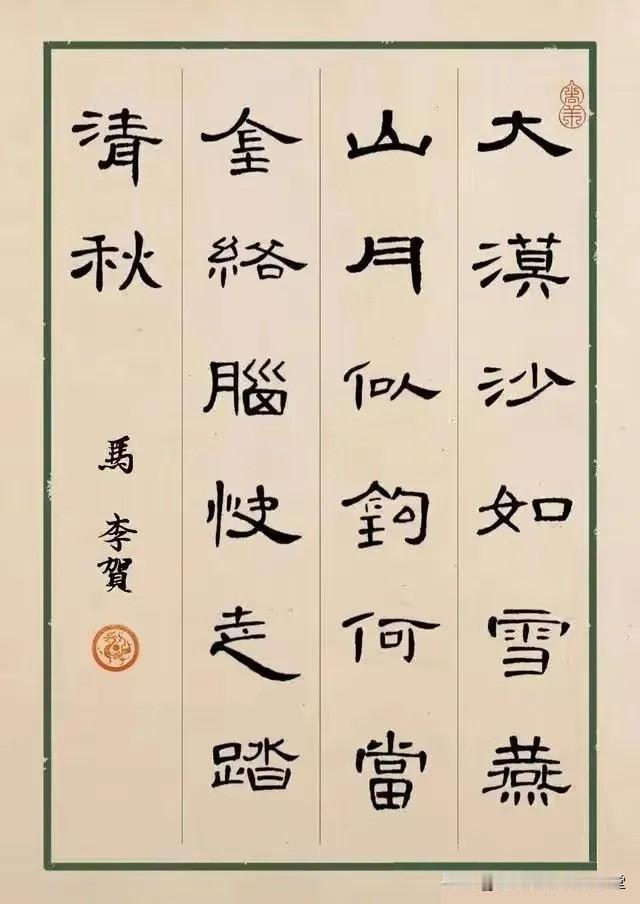 大漠沙如雪燕
山月似鉤何當
金絡腦快走踏
清秋
馬 李賀